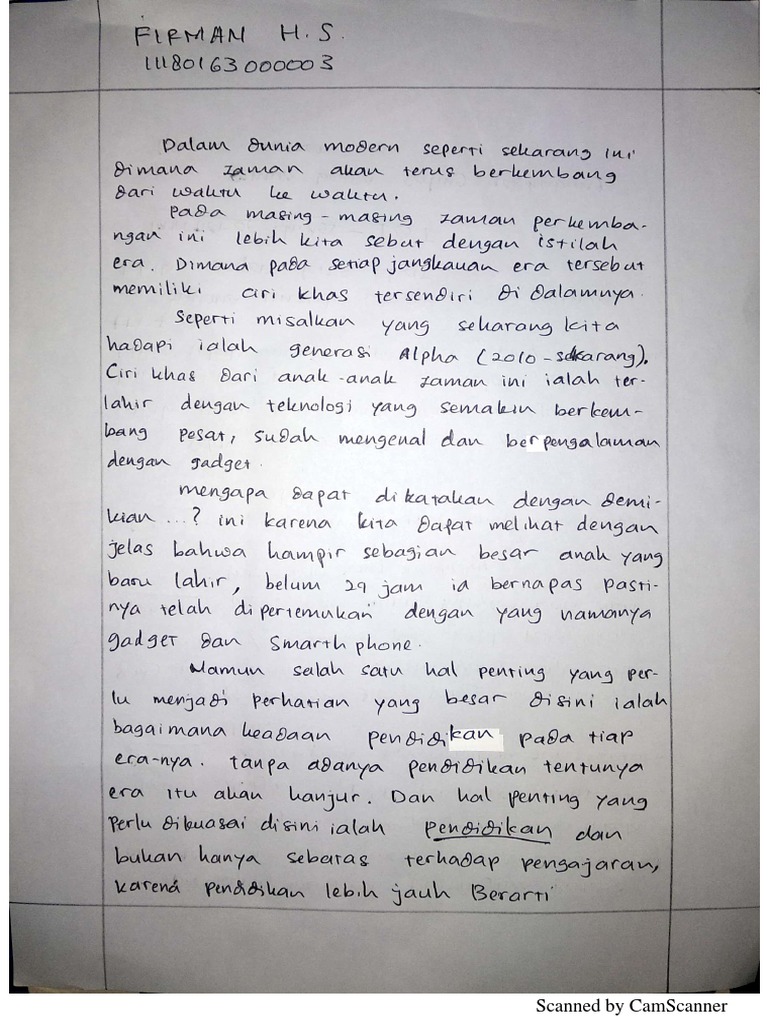 FIRMAN H.S.
11180163000003
Dalam dunia modern seperti sekarang ini
dimana zaman akan terus berkembang
dari waktu ke waktu.
pada masing-masing zaman perkemba-
ngan ini lebih kita sebut dengan istilah
era. Dimana pada setiap jangkauan era tersebut
memiliki ciri khas tersendiri di dalamnya.
Seperti misalkan yang sekarang kita
hadapi ialah generasi Alpha (2010-sekarang).
Ciri khas dari anak-anak zaman ini ialah ter-
lahir dengan teknologi yang semakin berkem-
bang pesat, sudah mengenal dan berpengalaman
dengan gadget.
mengapa dapat dikatakan dengan demi-
kian ...? ini karena kita dapat melihat dengan
jelas bahwa hampir sebagian besar anak yang
baru lahir, belum 24 jam ia bernapas pasti-
nya telah dipertemukan dengan yang namanya
gadget dan Smarth phone.
Namun salah satu hal penting yang per-
lu menjadi perhatian yang besar disini ialah
bagaimana keadaan pendidikan pada tiap
era-nya. tanpa adanya pendidikan tentunya
era itu akan hanjur. Dan hal penting yang
perlu dikuasai disini ialah pendidikan dan
bukan hanya sebatas terhadap pengajaran,
karena pendidikan lebih jauh Berarti
Scanned by CamScanner